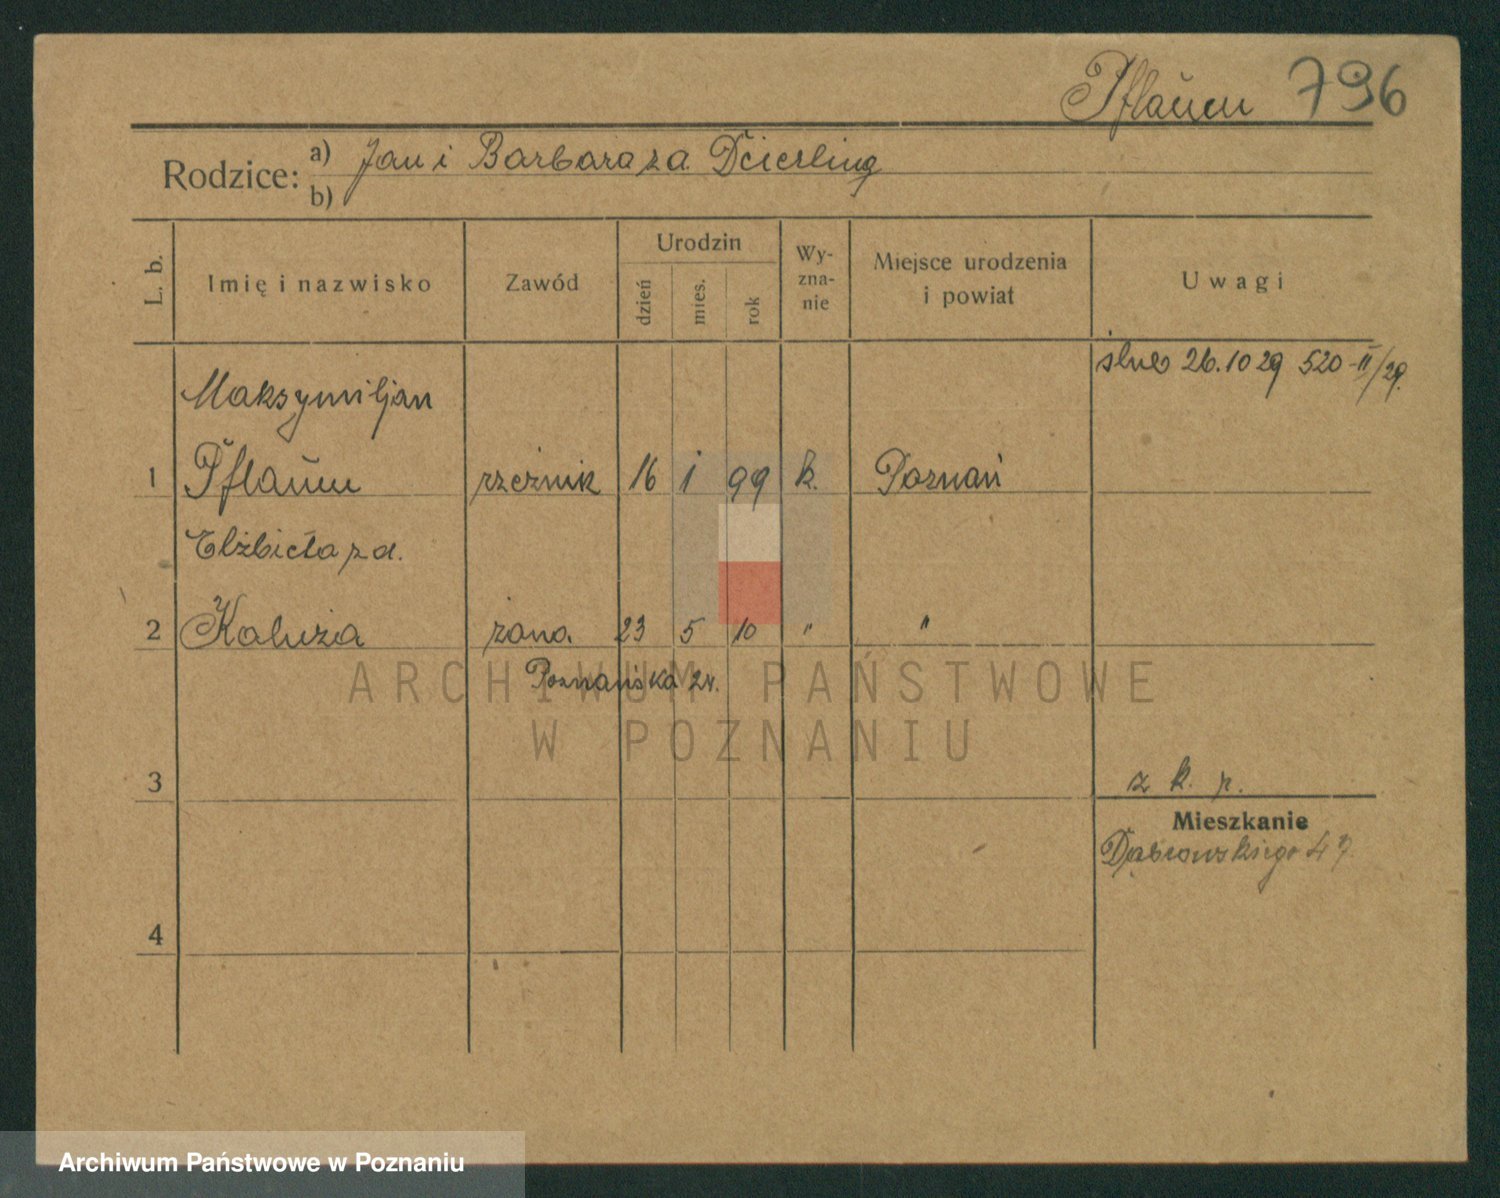 Pflaŭm 796
Rodzice: a) Jan i Barbara z d.
b)
L. b. Imię i nazwisko Zawód Urodzin dzień mies. rok Wy-zna-nie Miejsce urodzenia i powiat Uwagi
ślub 26.10 29 520-II/29.
Maksymiljan
1 Pflaŭm rzeźnik 16 1 99 k. Poznań
Elżbieta z d.
2 Kaluża żona 23 5 10 " "
Poznańska 24.
ARCHIWUM PAŃSTWOWE
W POZNANIU
3 z k. p.
Mieszkanie
Dąbrowskiego 47.
4
Archiwum Państwowe w Poznaniu